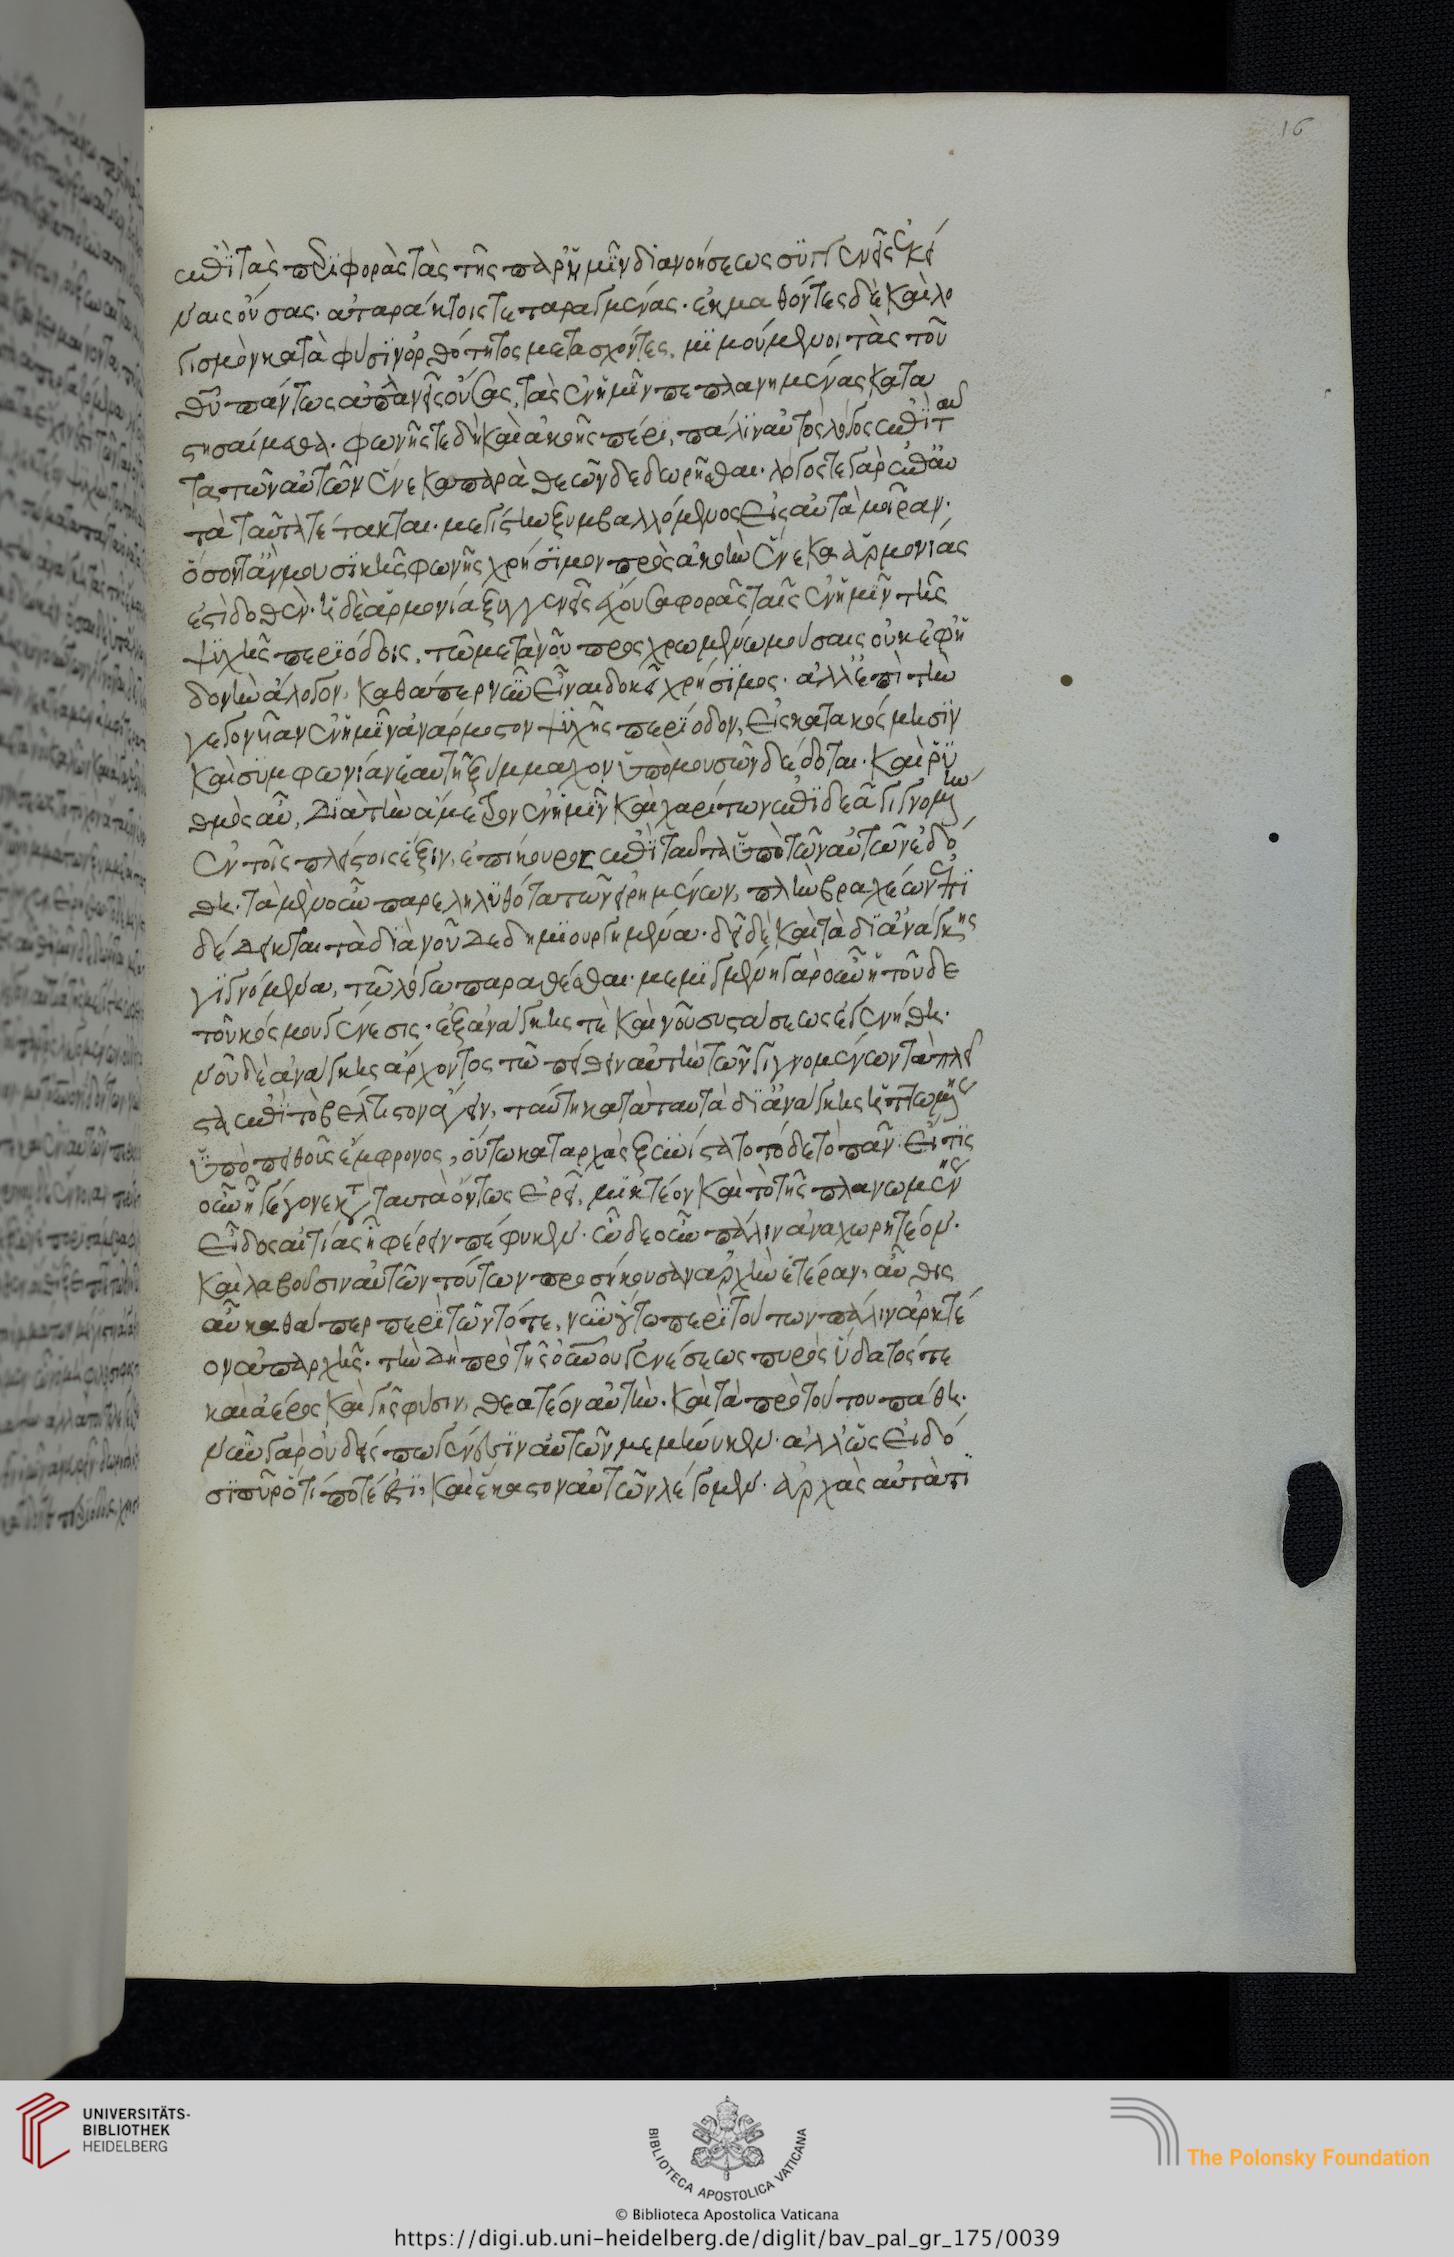 ἐπὶ τὰς περιφορὰς τὰς τῆς παρ' ἡμῖν διανοήσεως συγγενεῖς ἐκεί
ναις οὔσας. ἀταράκτοις τεταραγμένας. ἐκμαθόντες δὲ καὶ λο
γισμὸν κατὰ φύσιν ὀρθότητος μετασχόντες, μιμούμενοι τὰς τοῦ
θεοῦ πάντως ἀπλανεῖς οὔσας, τὰς ἐν ἡμῖν πεπλανημένας κατα
στησαίμεθα. φωνῆς τε δὴ καὶ ἀκοῆς πέρι, πάλιν αὐτὸς λόγος ἐπὶ ταυ
τὰ τῶν αὐτῶν ἕνεκα παρὰ θεῶν δεδωρῆσθαι. λόγος τε γὰρ ἐπ' αὐ
τὰ ταῦτα τέτακται. μεγίστην ξυμβαλλόμενος εἰς αὐτὰ μοῖραν.
ὅσον τ' ἂν μουσικῆς φωνῆς χρήσιμον πρὸς ἀκοὴν ἕνεκα ἁρμονίας
ἐστὶ δοθέν. ἡ δὲ ἁρμονία ξυγγενεῖς ἔχουσα φορὰς ταῖς ἐν ἡμῖν τῆς
ψυχῆς περιόδοις, τῷ μετὰ νοῦ προσχρωμένῳ μούσαις οὐκ ἐφ' ἡ
δονὴν ἄλογον, καθάπερ νῦν εἶναι δοκεῖ χρήσιμος. ἀλλ' ἐπὶ τὴν
γεγονυῖαν ἐν ἡμῖν ἀνάρμοστον ψυχῆς περίοδον, εἰς κατακόσμησιν
καὶ συμφωνίαν ἑαυτῇ ξύμμαχον ὑπὸ μουσῶν δέδοται. καὶ ῥυ
θμὸς αὖ, διὰ τὴν ἄμετρον ἐν ἡμῖν καὶ χαρίτων ἐπιδεᾶ γιγνομένην
ἐν τοῖς πλείστοις ἕξιν, ἐπίκουρος ἐπὶ ταῦτα ὑπὸ τῶν αὐτῶν ἐδό
θη. τὰ μὲν οὖν παρεληλυθότα τῶν εἰρημένων, πλὴν βραχέων ἐπι
δέδεικται τὰ διὰ νοῦ δεδημιουργημένα. δεῖ δὲ καὶ τὰ δι' ἀνάγκης
γιγνόμενα, τῷ λόγῳ παραθέσθαι. μεμιγμένη γὰρ οὖν ἡ τοῦδε
τοῦ κόσμου γένεσις. ἐξ ἀνάγκης τὲ καὶ νοῦ συστάσεως ἐγεννήθη.
νοῦ δὲ ἀνάγκης ἄρχοντος τῷ πείθειν αὐτὴν τῶν γιγνομένων τὰ πλεῖ
στα ἐπὶ τὸ βέλτιστον ἄγειν, ταύτῃ κατὰ ταυτὰ δι' ἀνάγκης ἡττωμένης
ὑπὸ πειθοῦς ἔμφρονος, οὕτω καταρχὰς ξυνίστατο τόδε τὸ πᾶν. εἴ τις
οὖν ᾗ γέγονε κατὰ ταυτὰ ὄντως ἐρεῖ, μικτέον καὶ τὸ τῆς πλανωμένης
εἶδος αἰτίας ᾗ φέρειν πέφυκεν. ὧδε οὖν πάλιν ἀναχωρητέον.
καὶ λαβοῦσιν αὐτῶν τούτων προσήκουσαν ἀρχὴν ἑτέραν, αὖθις
αὖ καθάπερ περὶ τῶν τότε, νῦν οὕτω περὶ τούτων πάλιν ἀρκτέ
ον ἀπ' ἀρχῆς. τὴν δὴ πρὸ τῆς οὐρανοῦ γενέσεως πυρὸς ὕδατός τε
καὶ ἀέρος καὶ γῆς φύσιν, θεατέον αὐτὴν. καὶ τὰ πρὸ τούτου πάθη.
νῦν γὰρ οὐδείς πω γένεσιν αὐτῶν μεμήνυκεν. ἀλλ' ὡς εἰδό
σι πῦρ ὅτί ποτέ ἐστι, καὶ ἕκαστον αὐτῶν λέγομεν. ἀρχὰς αὐτὰ τι
16
UNIVERSITÄTS-
BIBLIOTHEK
HEIDELBERG
BIBLIOTECA APOSTOLICA VATICANA
© Biblioteca Apostolica Vaticana
The Polonsky Foundation
https://digi.ub.uni-heidelberg.de/diglit/bav_pal_gr_175/0039